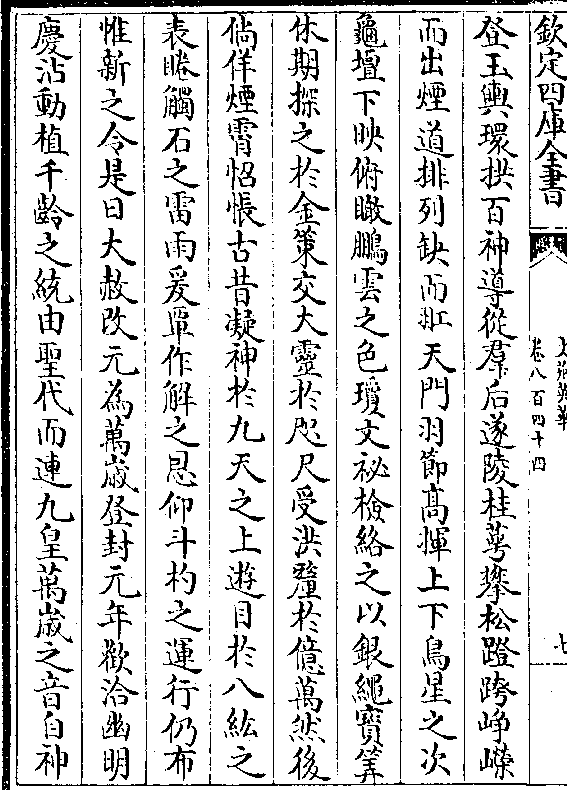 欽定四庫全書
文苑英華
卷八百四十四
七
登玉輿環拱百神導從羣后遂陵桂蕚攀松蹬跨崢嶸
而出煙道排列缺而掍天門羽節高揮上下鳥星之次
龜壇下映俯瞰鵬雲之色瓊文祕檢絡之以銀繩寶筭
休期探之於金策交大靈於咫尺受洪釐於億萬然後
倘佯煙霄怊悵古昔凝神於九天之上遊目於八紘之
表睠觸石之雷雨爰覃作解之恩仰斗杓之運行仍布
惟新之令是日大赦改元為萬歲登封元年歡洽幽明
慶沾動植千齡之統由聖代而連九皇萬歲之音自神